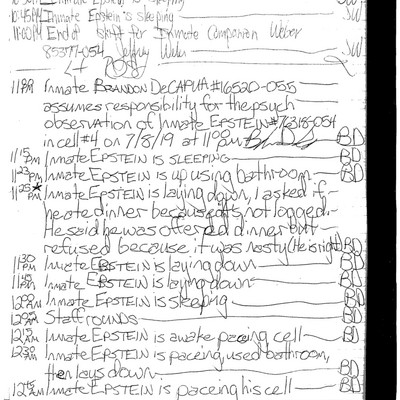 Inmate Epstein is sleeping
10:45PM Inmate Epstein's sleeping SW
11:00PM End of shift for Inmate Companion Weber SW
85377-054 Jeffrey Weber
11PM Inmate BRANDON DeCAPUA #16520-055
assumes responsibility for the psych
observation of Inmate EPSTEIN #76318-054
in cell #4 on 7/8/19 at 11:00pm BD
11:15PM Inmate EPSTEIN is SLEEPING BD
11:23PM Inmate EPSTEIN is up using bathroom BD
11:25PM* Inmate EPSTEIN is laying down, I asked if
he ate dinner because it's not logged.
He said he was offered dinner but
refused because it was nasty (He is right) BD
11:30PM Inmate EPSTEIN is laying down BD
Inmate EPSTEIN is laying down BD
Inmate EPSTEIN is sleeping BD
Staff rounds BD
Inmate EPSTEIN is awake pacing cell BD
Inmate EPSTEIN is pacing, used bathroom,
then lays down BD
Inmate EPSTEIN is pacing his cell BD